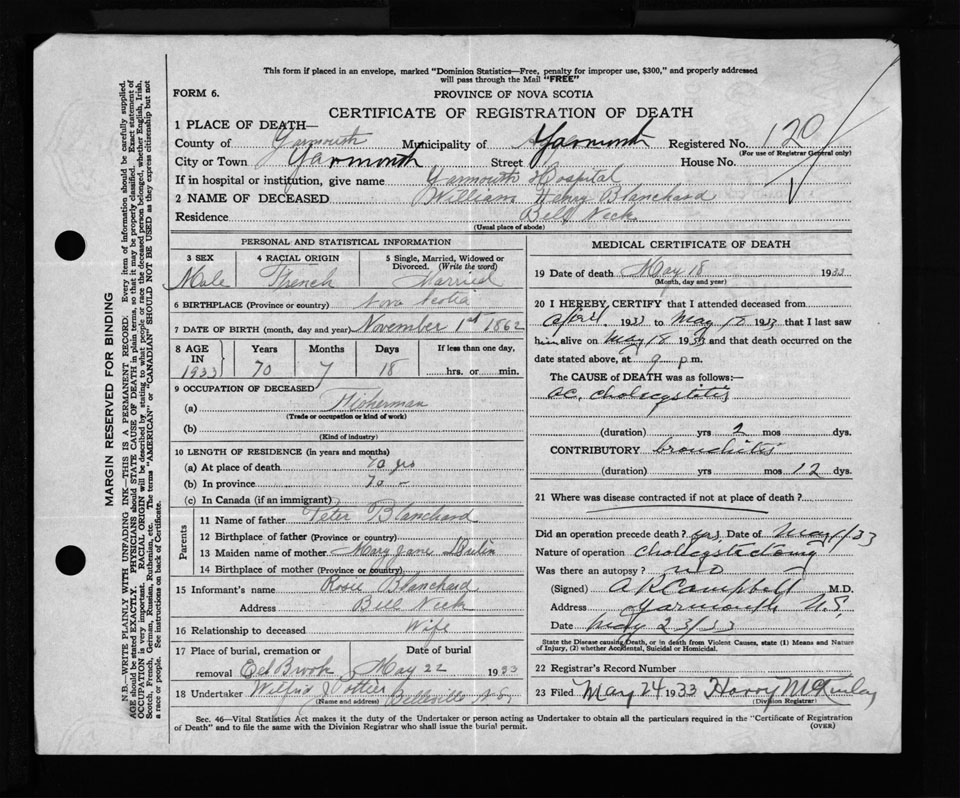 This form if placed in an envelope, marked "Dominion Statistics—Free, penalty for improper use, $300," and properly addressed
will pass through the Mail "FREE"
FORM 6.
PROVINCE OF NOVA SCOTIA
CERTIFICATE OF REGISTRATION OF DEATH
1 PLACE OF DEATH—
County of Yarmouth Municipality of Yarmouth Registered No. 120
(For use of Registrar General only)
City or Town Yarmouth Street House No.
If in hospital or institution, give name Yarmouth Hospital
2 NAME OF DECEASED William Henry Blanchard
Residence Bell Neck
(Usual place of abode)
PERSONAL AND STATISTICAL INFORMATION
3 SEX 4 RACIAL ORIGIN 5 Single, Married, Widowed or
Divorced. (Write the word)
Male French Married
6 BIRTHPLACE (Province or country) Nova Scotia
7 DATE OF BIRTH (month, day and year) November 1st 1862
8 AGE IN 1933 Years Months Days If less than one day,
70 7 18 hrs. or min.
9 OCCUPATION OF DECEASED
(a) Fisherman
(Trade or occupation or kind of work)
(b)
(Kind of industry)
10 LENGTH OF RESIDENCE (in years and months)
(a) At place of death 70 yrs
(b) In province 70 -
(c) In Canada (if an immigrant)
Parents
11 Name of father Peter Blanchard
12 Birthplace of father (Province or country)
13 Maiden name of mother Mary Jane
14 Birthplace of mother (Province or country)
15 Informant's name Rosie Blanchard
Address Bell Neck
16 Relationship to deceased Wife
17 Place of burial, cremation or Date of burial
removal Eel Brook May 22 1933
18 Undertaker Wilfrid Pottier Belleville N.S.
(Name and address)
MEDICAL CERTIFICATE OF DEATH
19 Date of death May 18 1933
(Month, day and year)
20 I HEREBY CERTIFY that I attended deceased from
April 1933 to May 18 1933 that I last saw
him alive on May 18 1933 and that death occurred on the
date stated above, at 9 p m.
The CAUSE of DEATH was as follows:—
ac. cholecystitis
(duration) yrs 2 mos dys.
CONTRIBUTORY bronchitis
(duration) yrs mos 12 dys.
21 Where was disease contracted if not at place of death?
Did an operation precede death? yes Date of May 1/33
Nature of operation cholecystectomy
Was there an autopsy? no
(Signed) A R Campbell M.D.
Address Yarmouth N.S.
Date May 23/33
State the Disease causing Death, or in death from Violent Causes, state (1) Means and Nature
of Injury, (2) whether Accidental, Suicidal or Homicidal.
22 Registrar's Record Number
23 Filed May 24 1933 Harry McKinlay
(Division Registrar)
Sec. 46—Vital Statistics Act makes it the duty of the Undertaker or person acting as Undertaker to obtain all the particulars required in the "Certificate of Registration
of Death" and to file the same with the Division Registrar who shall issue the burial permit. (OVER)
MARGIN RESERVED FOR BINDING
N.B.—WRITE PLAINLY WITH UNFADING INK—THIS IS A PERMANENT RECORD. Every item of information should be carefully supplied.
AGE should be stated EXACTLY. PHYSICIANS should STATE CAUSE OF DEATH in plain terms, so that it may be properly classified. Exact statement of
OCCUPATION is very important. RACIAL ORIGIN will be described by stating to what people or race the deceased person belonged, whether English, Irish,
Scotch, French, German, Russian, Ruthenian, etc. The terms "AMERICAN" or "CANADIAN" SHOULD NOT BE USED as they express citizenship but not
a race or people. See instructions on back of Certificate.